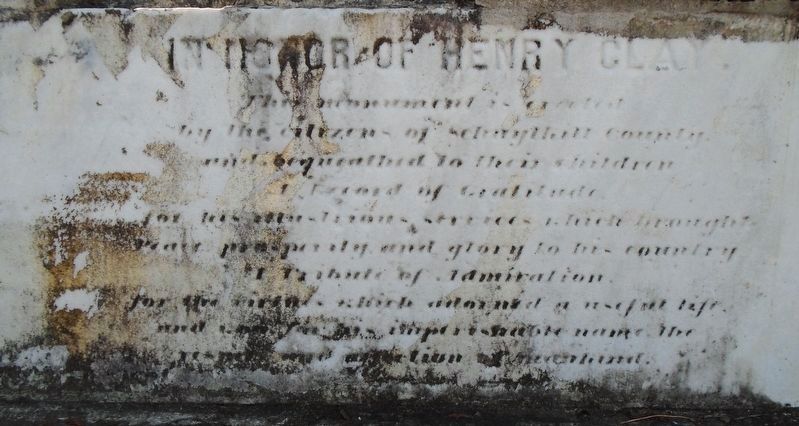 IN HONOR OF HENRY CLAY.
This monument is erected
by the citizens of Schuylkill County,
and bequeathed to their children
A Record of Gratitude
for his illustrious services which brought
Peace, prosperity and glory to his country
A Tribute of Admiration.
for the virtues which adorned a useful life,
and won for his imperishable name, the
respect and affection of mankind.